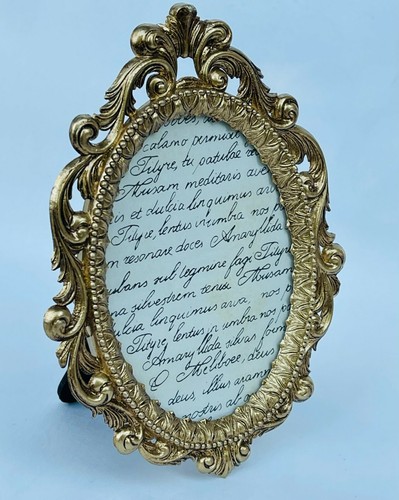 calamo permuxe
Tityre, tu patulae
Musam meditaris ave
is et dulcia linquimus arv
Tityre, lentus in umbra nos p
m resonare doces Amaryllida
ubans sub legmine fagi Tityre
na silvestrem tenui Musam
ulcia linquimus arva, nos p
Tityre, lentus in umbra nos, p
Amaryllida silvas form
O Meliboee, deus
deus, illius aram
nostris ab